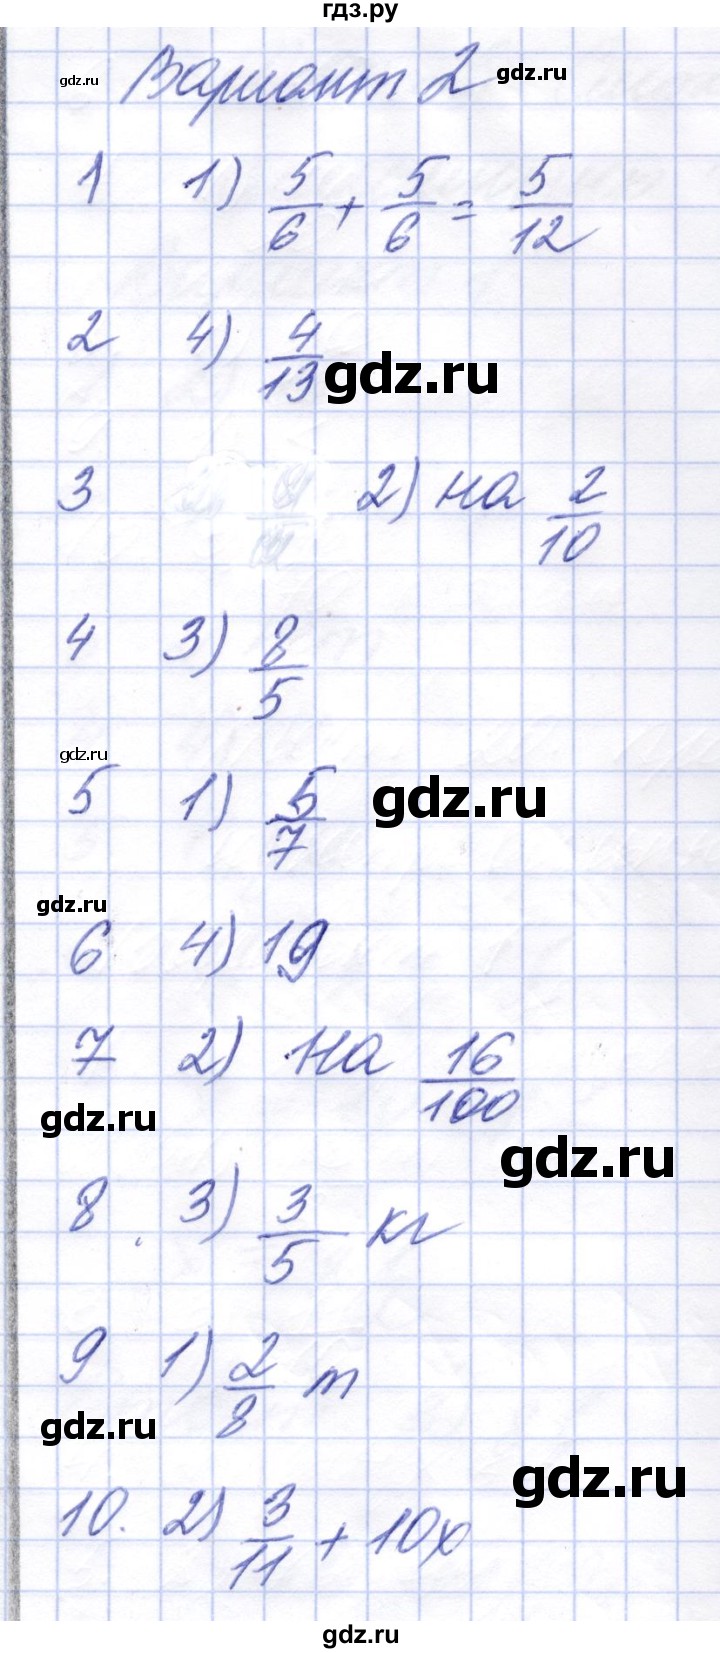 гдз.ру
gdz.ru
Вариант 2
gdz.ru
1 1) 5/6 + 5/6 = 5/12
2 4) 4/13
gdz.ru
3 2) на 2/10
4 3) 8/5
gdz.ru
5 1) 5/7
gdz.ru
gdz.ru
6 4) 19
7 2) на 16/100
gdz.ru
gdz.ru
8 3) 3/5 кг
9 1) 2/8 т
gdz.ru
gdz.ru
10. 2) 3/11 + 10x
gdz.ru